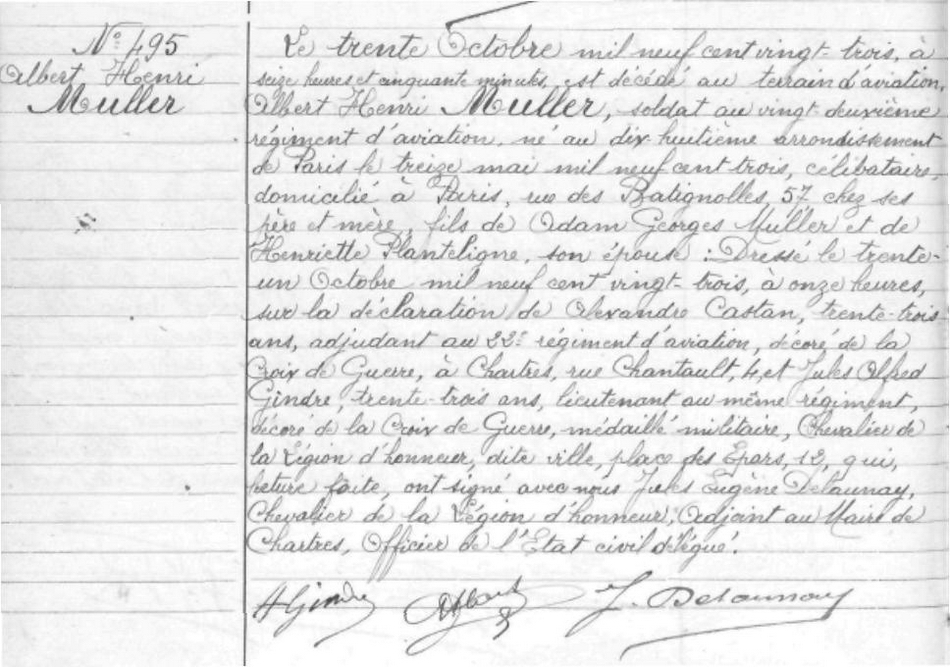 N° 495
Albert Henri
Muller
Le trente Octobre mil neuf cent vingt-trois, à
seize heures et cinquante minutes, est décédé au terrain d'aviation,
Albert Henri Muller, soldat au vingt-deuxième
régiment d'aviation, né au dix-huitième arrondissement
de Paris le treize mai mil neuf cent trois, célibataire,
domicilié à Paris, rue des Batignolles, 57 chez ses
père et mère, fils de Adam Georges Muller et de
Henriette Planteligne, son épouse : Dressé le trente-
un Octobre mil neuf cent vingt-trois, à onze heures,
sur la déclaration de Alexandre Castan, trente-trois
ans, adjudant au 22e régiment d'aviation, décoré de la
Croix de Guerre, à Chartres, rue Chantault, 4, et Jules Alfred
Gindre, trente-trois ans, lieutenant au même régiment,
décoré d la Croix de Guerre, médaillé militaire, Chevalier de
la Légion d'honneur, dite ville, place des Epars, 12, qui,
lecture faite, ont signé avec nous Jules Eugène Delaunay,
Chevalier de la Légion d'honneur, Adjoint au Maire de
Chartres, Officier de l'Etat civil délégué.
AGindre J. Delaunay